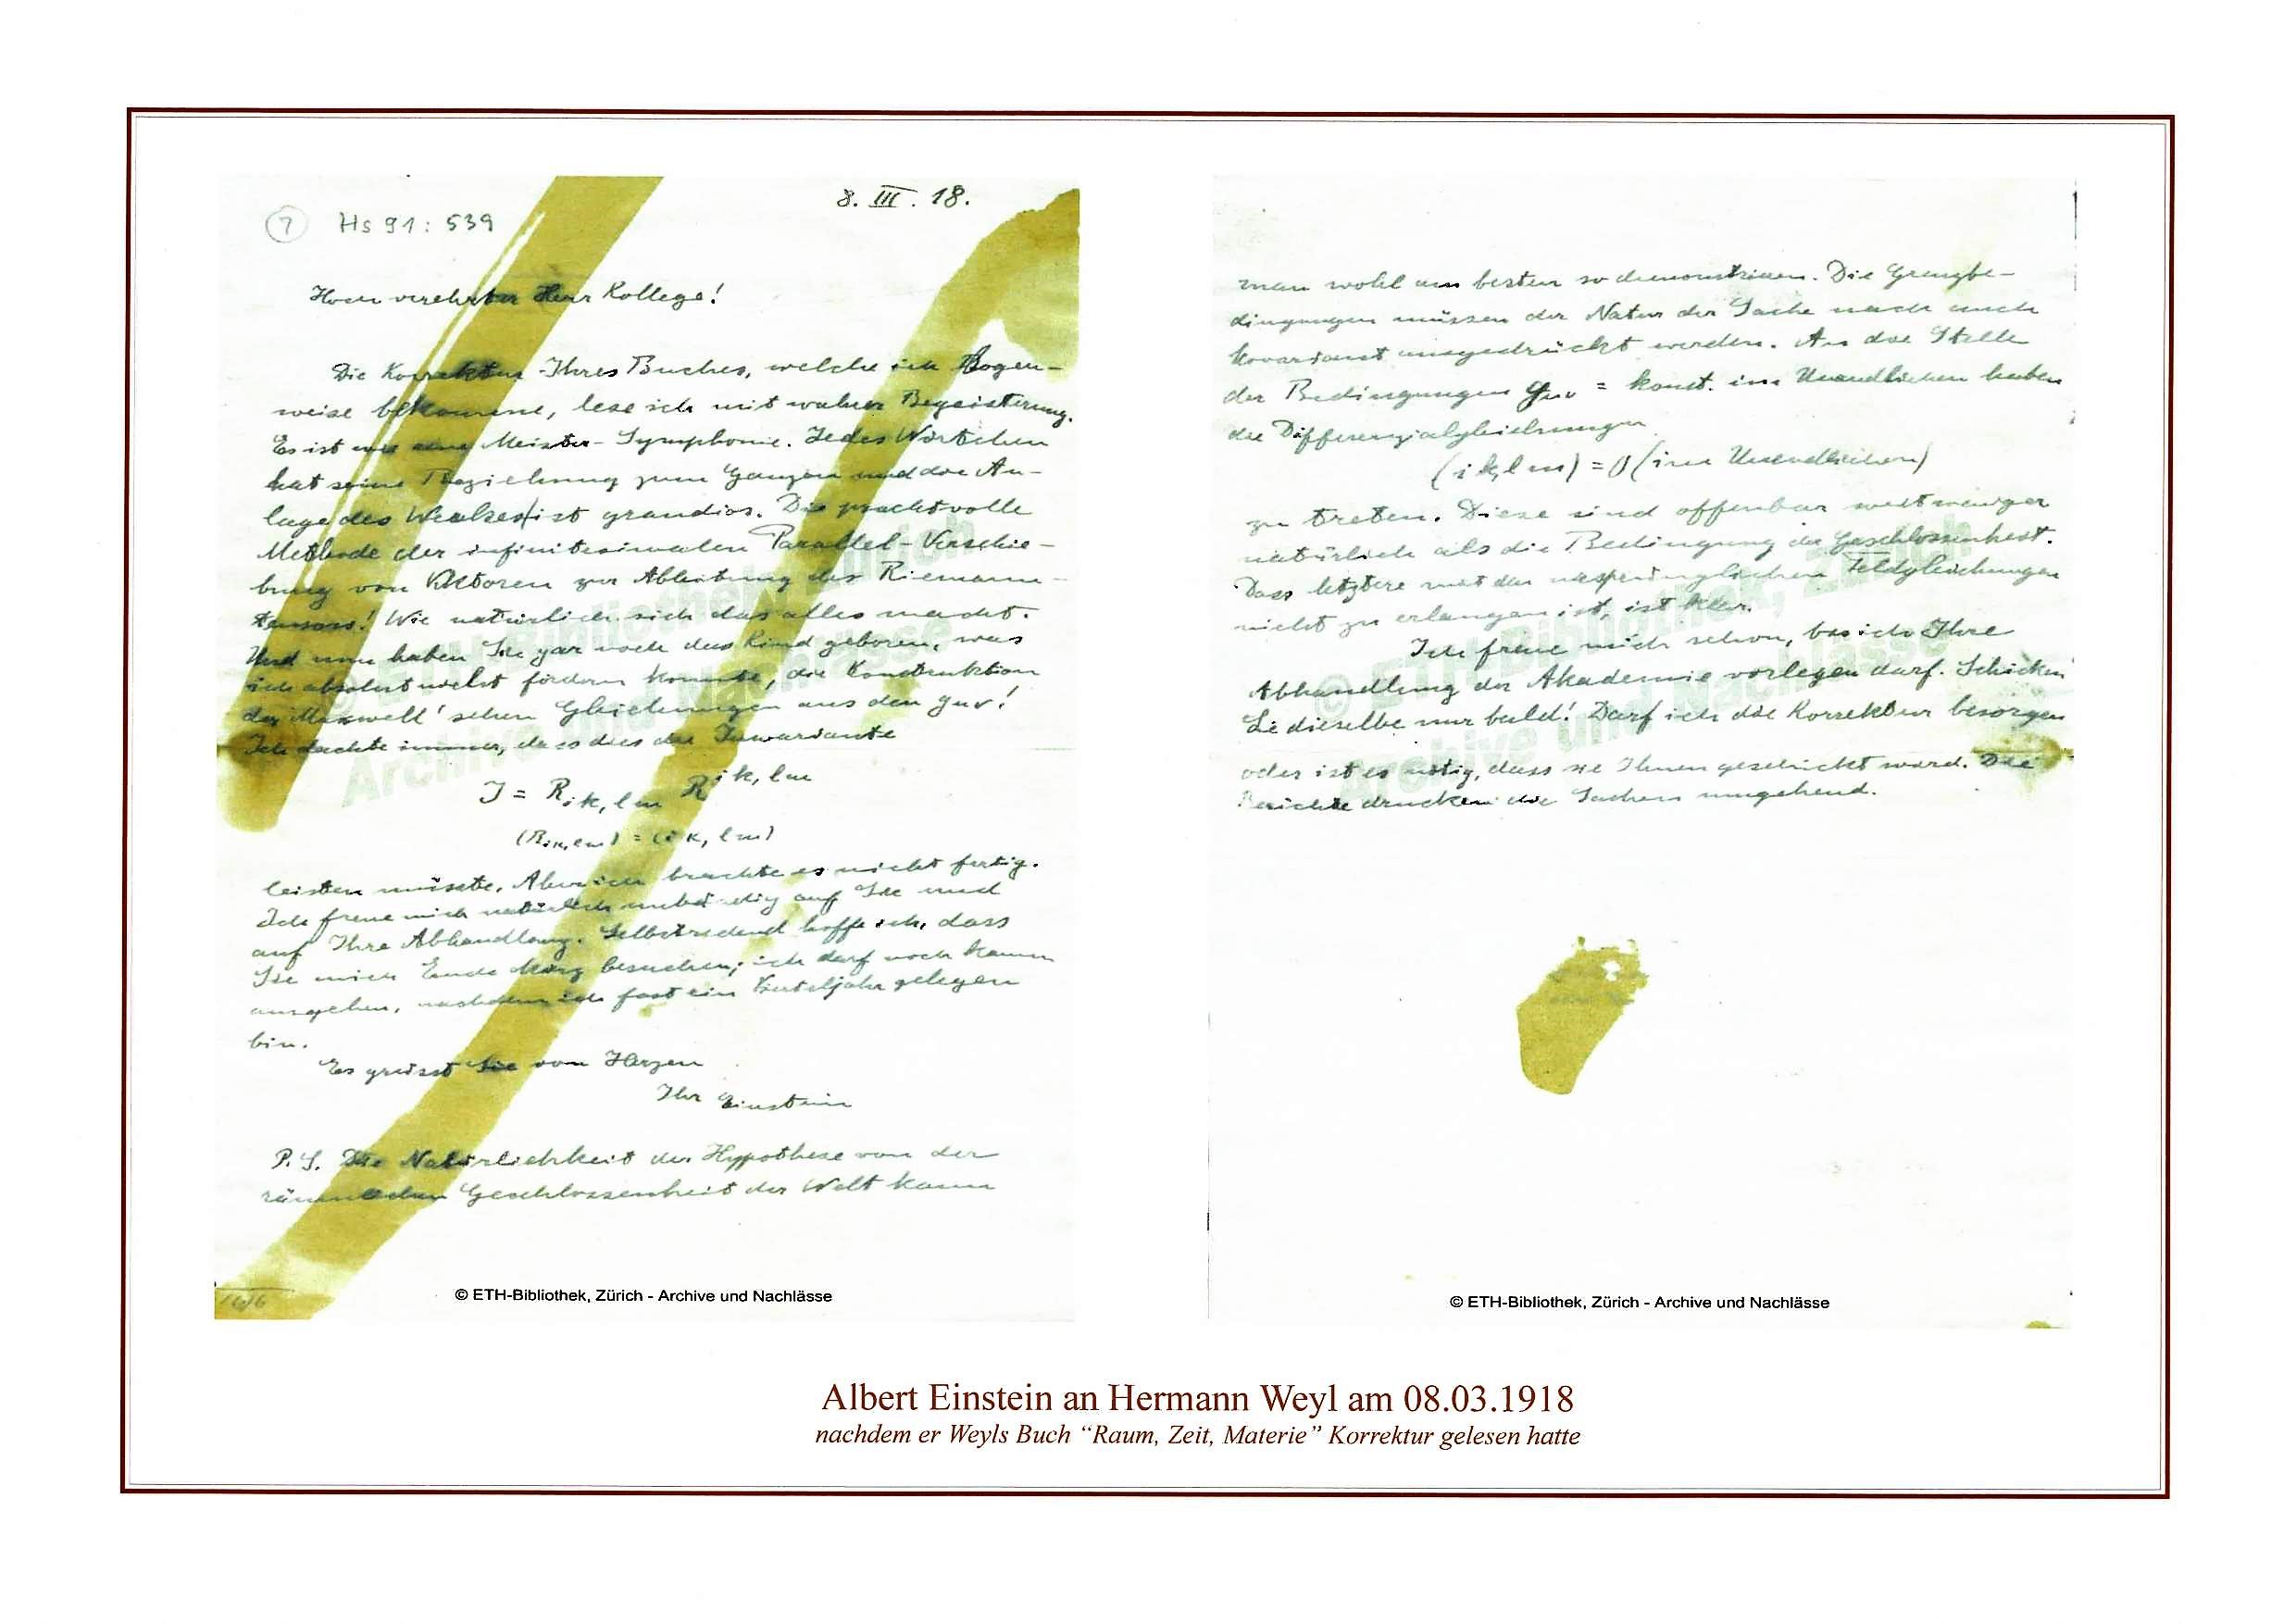 8. III. 18.
7 Hs 91: 539
Hoch verehrter Herr Kollege!
Die Korrektur Ihres Buches, welche ich Bogen-
weise bekomme, lese ich mit wahrer Begeisterung.
Es ist wie eine Meister-Symphonie. Jedes Wörtchen
hat seine Beziehung zum Ganzen und die An-
lage des Werkes ist grandios. Die prachtvolle
Methode der infinitesimalen Parallel-Verschie-
bung von Vektoren zur Ableitung des Riemann-
tensors! Wie natürlich sich das alles macht.
Und nun haben Sie gar noch das Kind geboren, was
ich absolut nicht fördern konnte, die Konstruktion
der Maxwell'schen Gleichungen aus den gμν!
Ich dachte immer, dass dies die Invariante
J = Rik, lm Rik, lm
(Rik, lm) = (ik, lm)
leisten müsste. Aber ich brachte es nicht fertig.
Ich freue mich natürlich unbändig auf Sie und
auf Ihre Abhandlung. Selbstredend hoffe ich, dass
Sie mich Ende März besuchen; ich darf noch kaum
ausgehen, nachdem ich fast ein Vierteljahr gelegen
bin.
Es grüsst Sie von Herzen
Ihr Einstein
P. S. Die Natürlichkeit der Hypothese von der
räumlichen Geschlossenheit der Welt kann
© ETH-Bibliothek, Zürich
Archive und Nachlässe
© ETH-Bibliothek, Zürich - Archive und Nachlässe
man wohl am besten so demonstrieren. Die Grenzbe-
dingungen müssen der Natur der Sache nach auch
kovariant ausgedrückt werden. An die Stelle
der Bedingungen gμν = konst. im Unendlichen haben
die Differenzialgleichungen
(ik, lm) = 0 (im Unendlichen)
zu treten. Diese sind offenbar weit weniger
natürlich als die Bedingung der Geschlossenheit.
Dass letztere mit den ursprünglichen Feldgleichungen
nicht zu erlangen ist, ist klar.
Ich freue mich schon, bis ich Ihre
Abhandlung der Akademie vorlegen darf. Schicken
Sie dieselbe nur bald! Darf ich die Korrektur besorgen
oder ist es nötig, dass sie Ihnen geschickt werd. Die
Berichte drucken die Sachen umgehend.
© ETH-Bibliothek, Zürich
Archive und Nachlässe
© ETH-Bibliothek, Zürich - Archive und Nachlässe
Albert Einstein an Hermann Weyl am 08.03.1918
nachdem er Weyls Buch “Raum, Zeit, Materie” Korrektur gelesen hatte